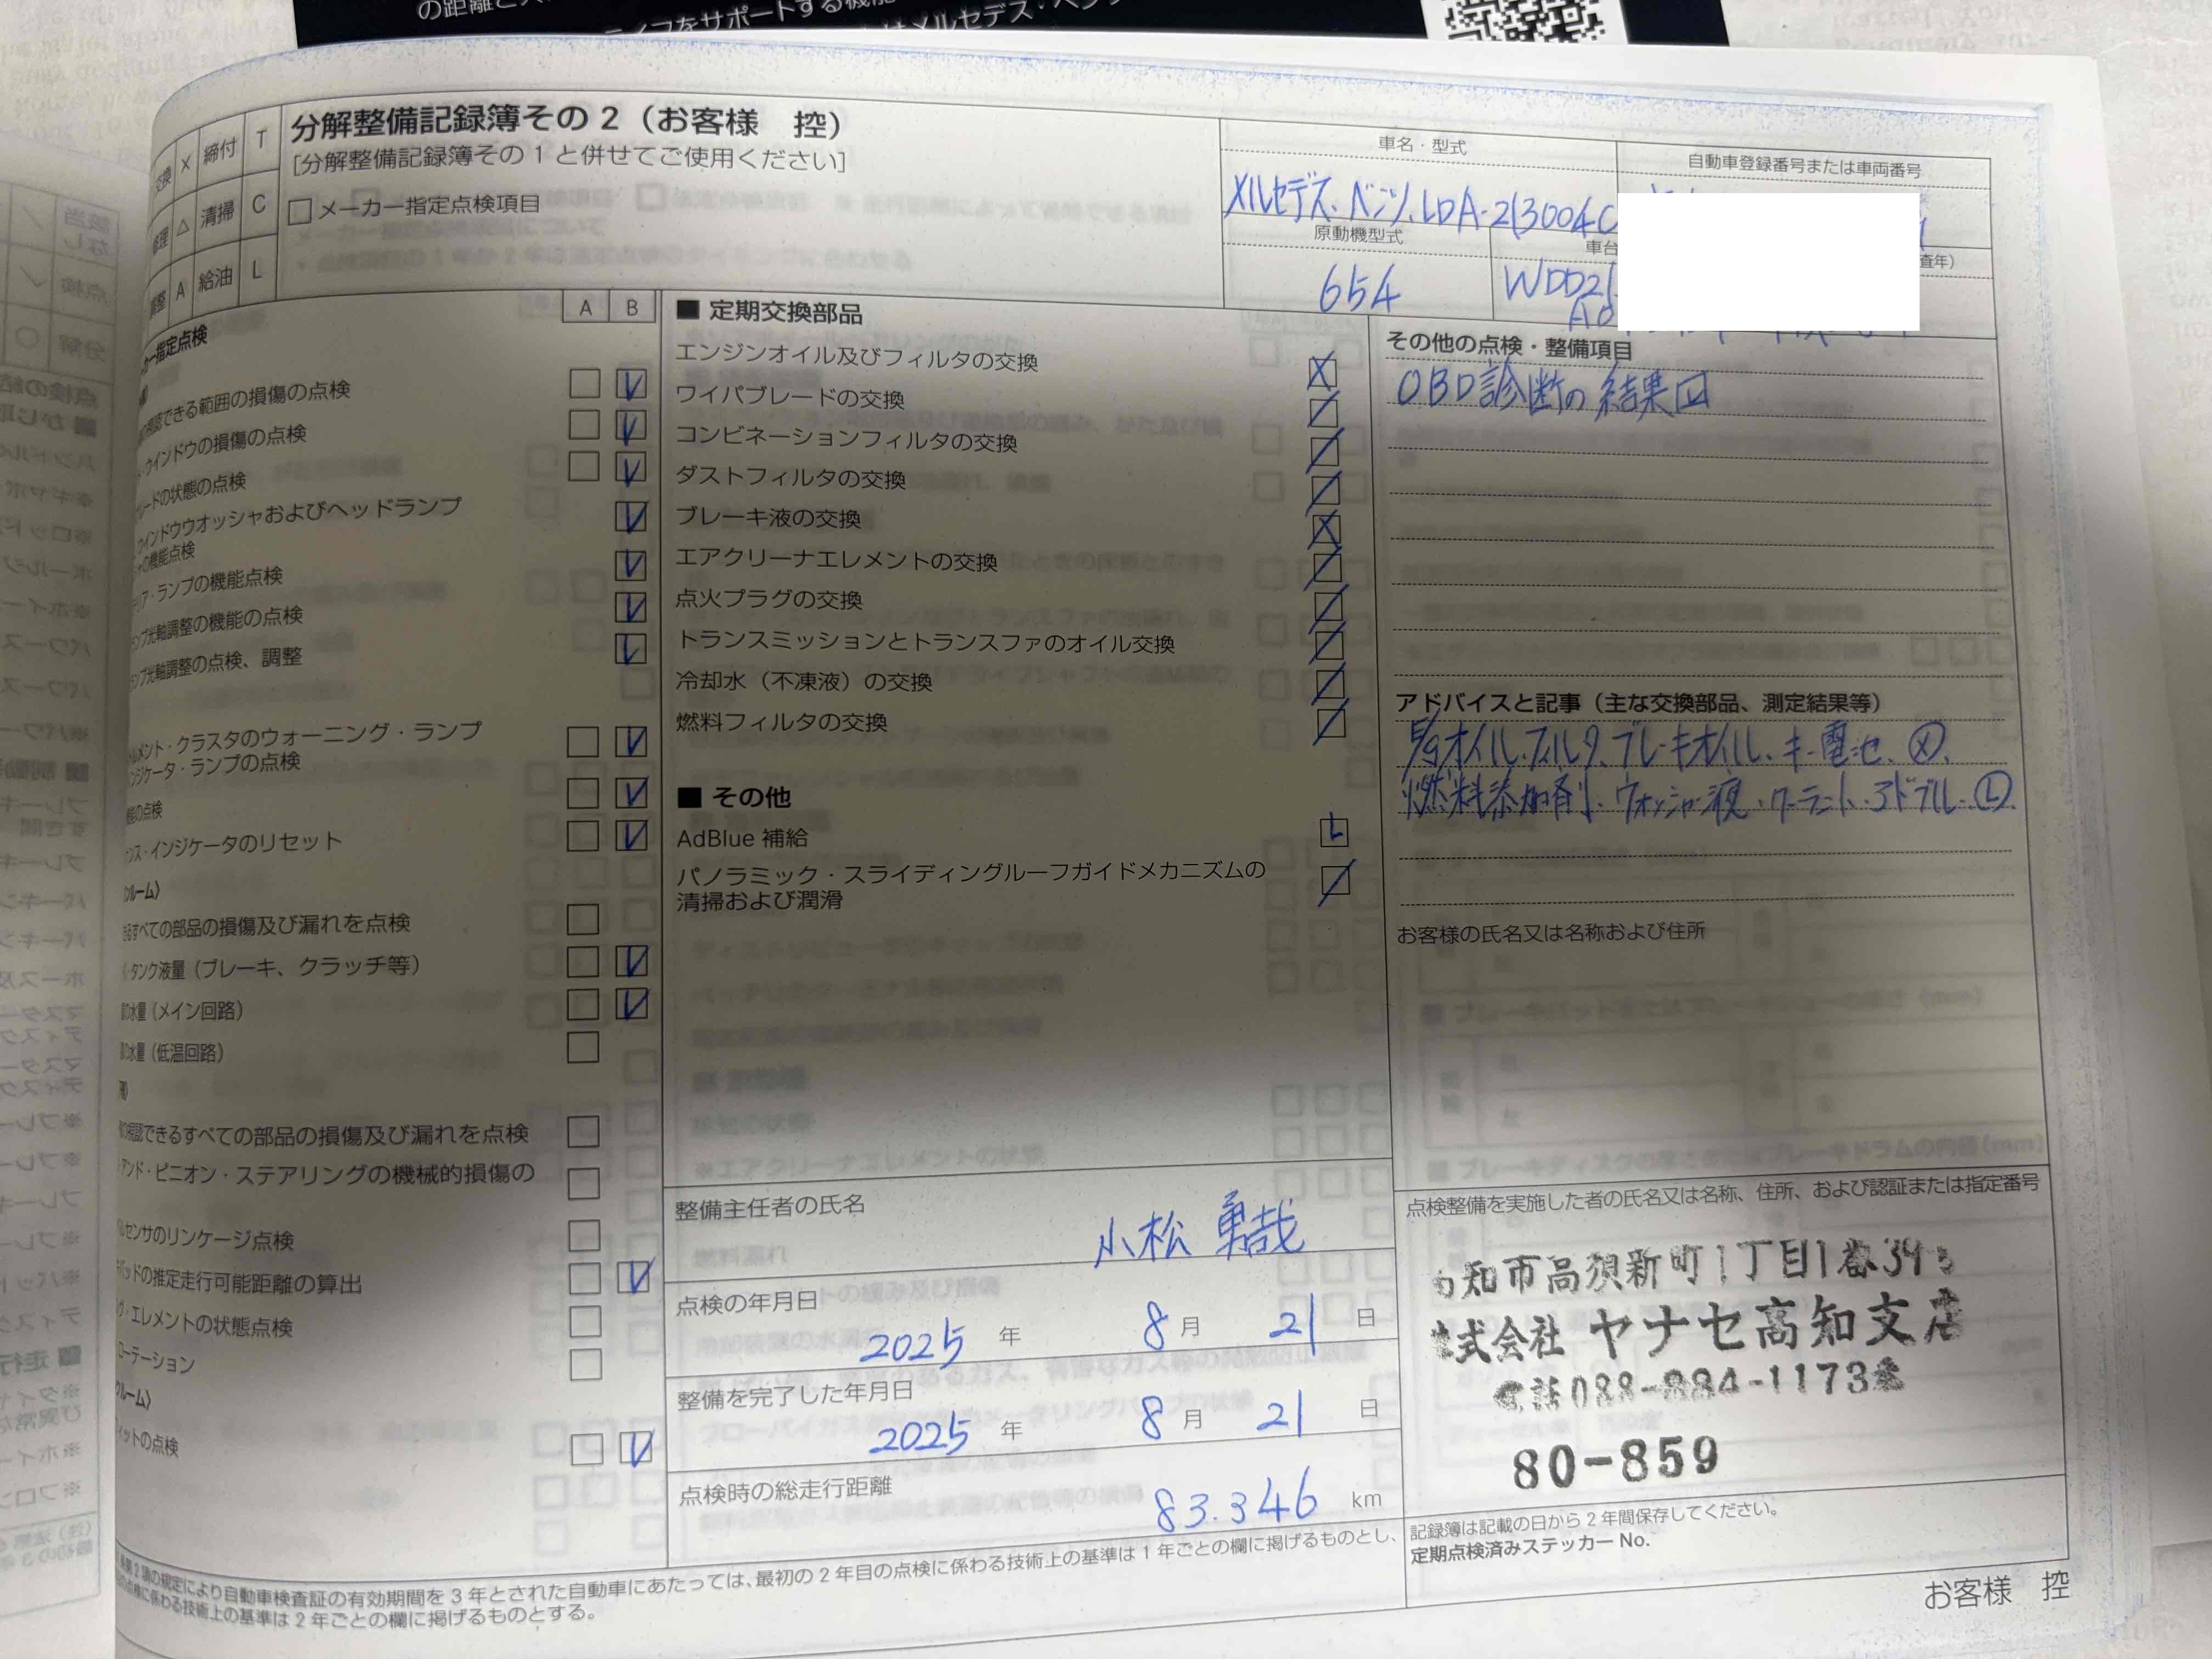 分解整備記録簿その2（お客様 控）
[分解整備記録簿その1と併せてご使用ください]
交換 × 締付 T
修理 △ 清掃 C
調整 A 給油 L
メーカー指定点検項目
車名・型式
メルセデス、ベンツ、LDA-213004C
自動車登録番号または車両番号
原動機型式
654
車台
WDD21
査年）
A B
カー指定点検
視認できる範囲の損傷の点検
ウインドウの損傷の点検
レードの状態の点検
ウインドウウオッシャおよびヘッドランプ
の機能点検
テリア・ランプの機能点検
ンプ光軸調整の機能の点検
ンプ光軸調整の点検、調整
ルメント・クラスタのウォーニング・ランプ
ンジケータ・ランプの点検
能の点検
ンス・インジケータのリセット
ルーム〉
るすべての部品の損傷及び漏れを点検
タンク液量（ブレーキ、クラッチ等）
水量（メイン回路）
水量（低温回路）
視認できるすべての部品の損傷及び漏れを点検
アンド・ピニオン・ステアリングの機械的損傷の
ルセンサのリンケージ点検
パッドの推定走行可能距離の算出
グ・エレメントの状態点検
ローテーション
ルーム〉
ットの点検
■ 定期交換部品
エンジンオイル及びフィルタの交換 X
ワイパブレードの交換 /
コンビネーションフィルタの交換 /
ダストフィルタの交換 /
ブレーキ液の交換 X
エアクリーナエレメントの交換 /
点火プラグの交換 /
トランスミッションとトランスファのオイル交換 /
冷却水（不凍液）の交換 /
燃料フィルタの交換 /
■ その他
AdBlue 補給 L
パノラミック・スライディングルーフガイドメカニズムの
清掃および潤滑 /
その他の点検・整備項目
OBD診断の結果
アドバイスと記事（主な交換部品、測定結果等）
E/gオイル、フィルタ、ブレーキオイル、キー電池、Ⓧ、
燃料添加剤、ウォッシャー液、クーラント、アドブルー Ⓛ
お客様の氏名又は名称および住所
整備主任者の氏名
小松 勇哉
点検の年月日
2025 年 8 月 21 日
整備を完了した年月日
2025 年 8 月 21 日
点検時の総走行距離
83.346 km
点検整備を実施した者の氏名又は名称、住所、および認証または指定番号
知市高須新町1丁目1番39
式会社 ヤナセ高知支店
電話088-884-1173番
80-859
記録簿は記載の日から2年間保存してください。
定期点検済みステッカー No.
第2項の規定により自動車検査証の有効期間を3年とされた自動車にあたっては、最初の2年目の点検に係わる技術上の基準は1年ごとの欄に掲げるものとし、
の点検に係わる技術上の基準は2年ごとの欄に掲げるものとする。
お客様 控